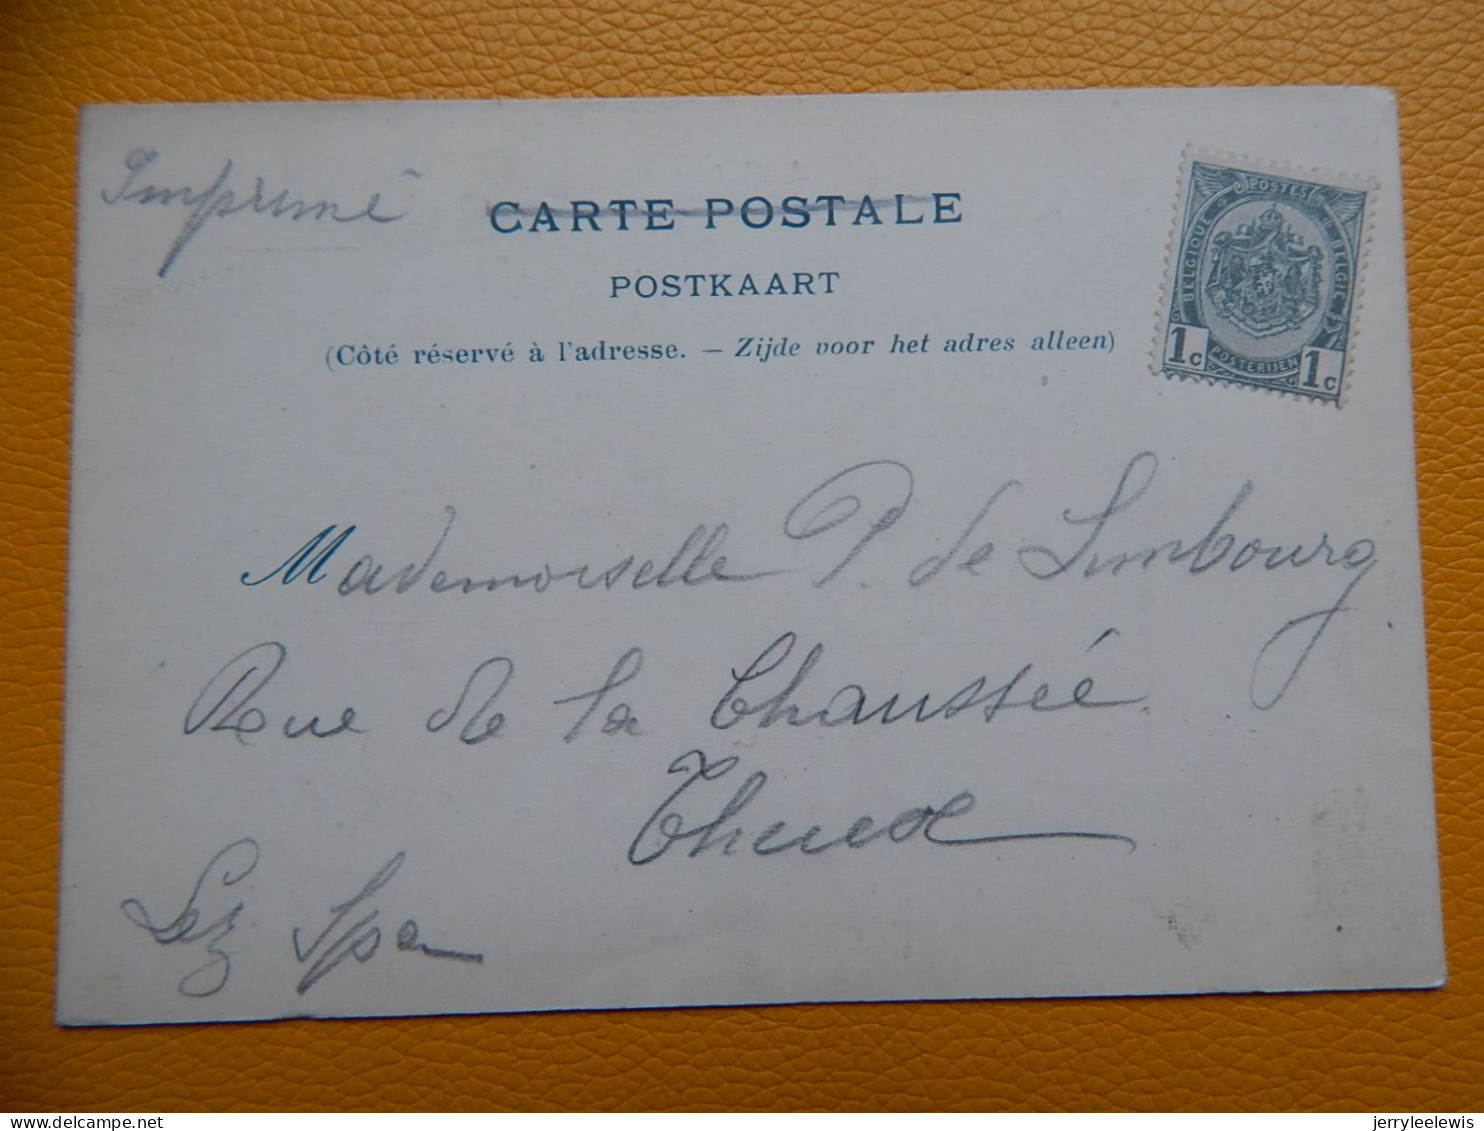 Imprimé
CARTE POSTALE
POSTKAART
(Côté réservé à l'adresse. — Zijde voor het adres alleen)
POSTES
BELGIQUE
BELGIE
POSTERIJEN
1c 1c
Mademoiselle P. de Limbourg
Rue de la Chaussée
Theux
Lez Spa
delcampe.net
jerryleelewis